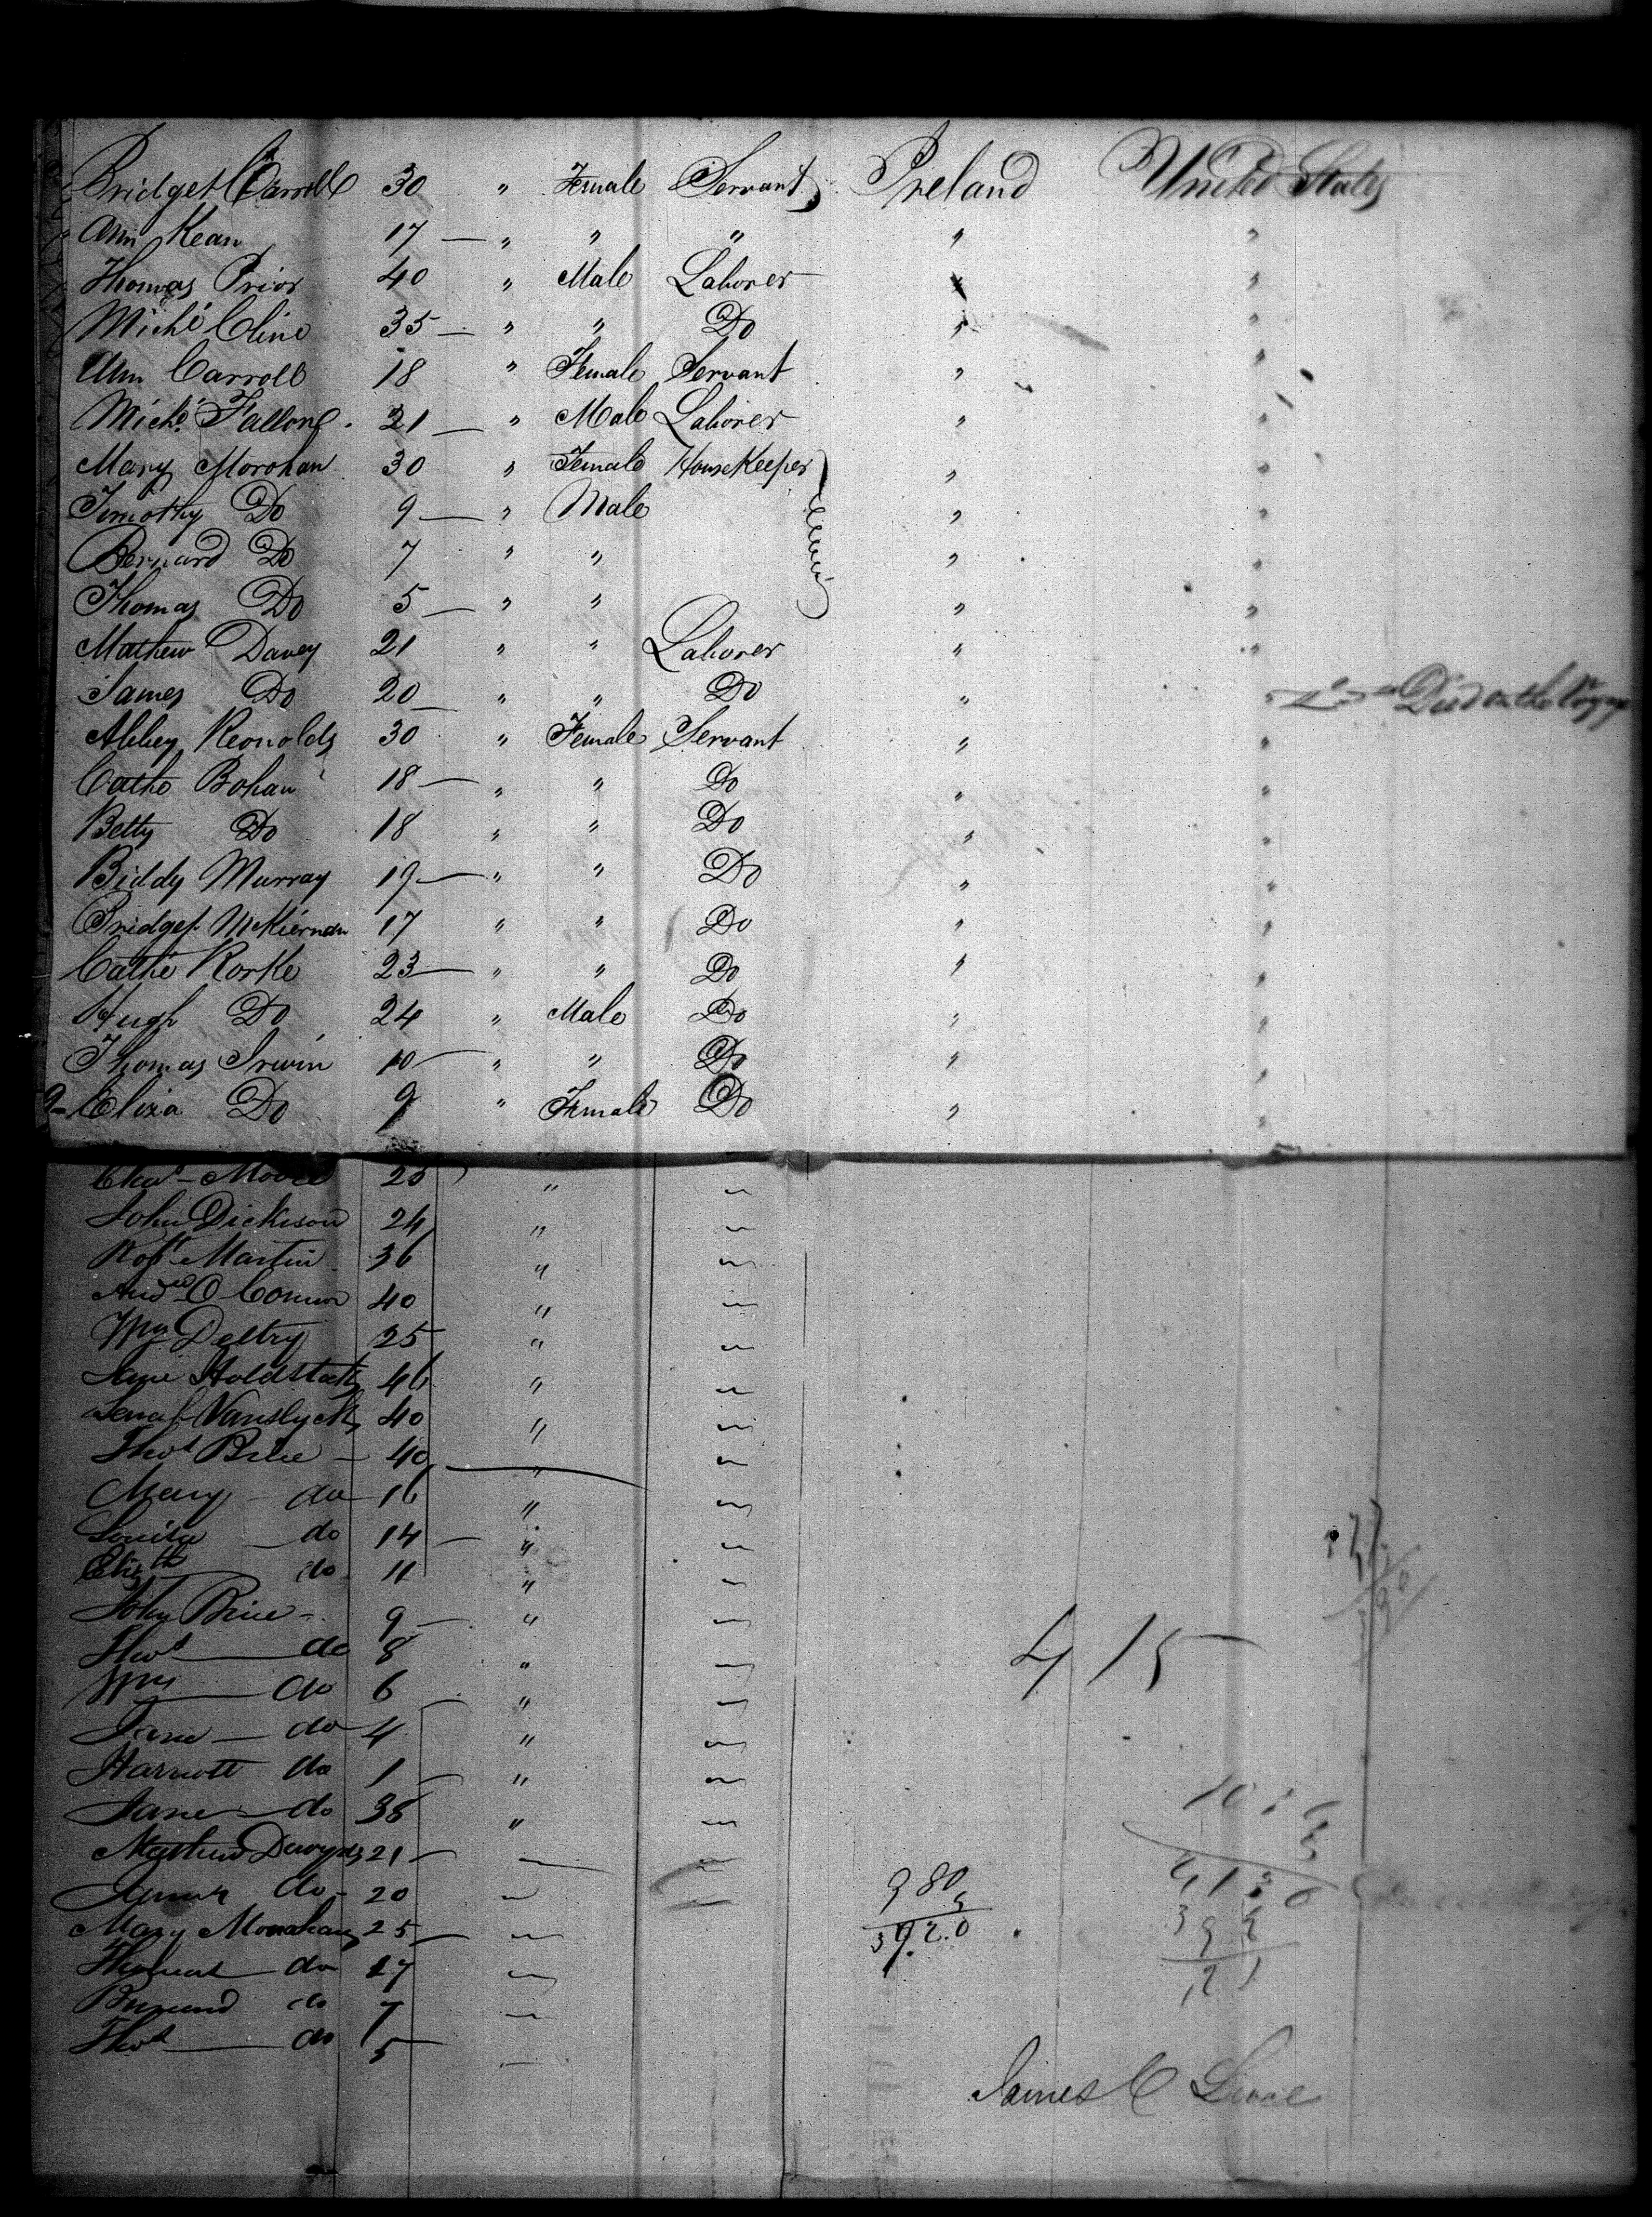 Bridget Carroll 30 " Female Servant Ireland United States
Ann Kean 17 — " " " " "
Thomas Prior 40 " Male Laborer " "
Michl Cline 35 — " " Do " "
Ann Carroll 18 " Female Servant " "
Michl Fallon 21 — " Male Laborer " "
Mary Morohan 30 " Female HouseKeeper " "
Timothy Do 9 — " Male " "
Bernard Do 7 " " " "
Thomas Do 5 — " " " "
Mathew Davey 21 " " Laborer " "
James Do 20 — " " Do " " Died on the Voyage
Abbey Reonolds 30 " Female Servant " "
Cathe Bohan 18 — " " Do " "
Betty Do 18 " " Do " "
Biddy Murray 19 — " " Do " "
Bridget McKiernan 17 " " Do " "
Cathe Rorke 23 — " " Do " "
Hugh Do 24 " Male Do " "
Thomas Irwin 10 — " " Do " "
Eliza Do 9 " Female Do " "
Chas - Moore 25 "
John Dickison 24 "
Robt Martin 36 "
Andw O Connor 40 "
Wm Deltry 25 "
Jane 46 "
40 "
Thos Brice — 40 "
Mary — do 16 "
Louisa — do 14 — "
Elizth do 11 "
John Brice - 9 — "
Thos — do 8 "
Wm — do 6 "
Jane — do 4 "
Harriott do 1 — "
Jane — do 38 "
Mathew 21 —
James do - 20
Mary Monahan 25 —
Thomas — do 17
Bernard do 7
Thos — do 5
415
980
3920
James C Luce